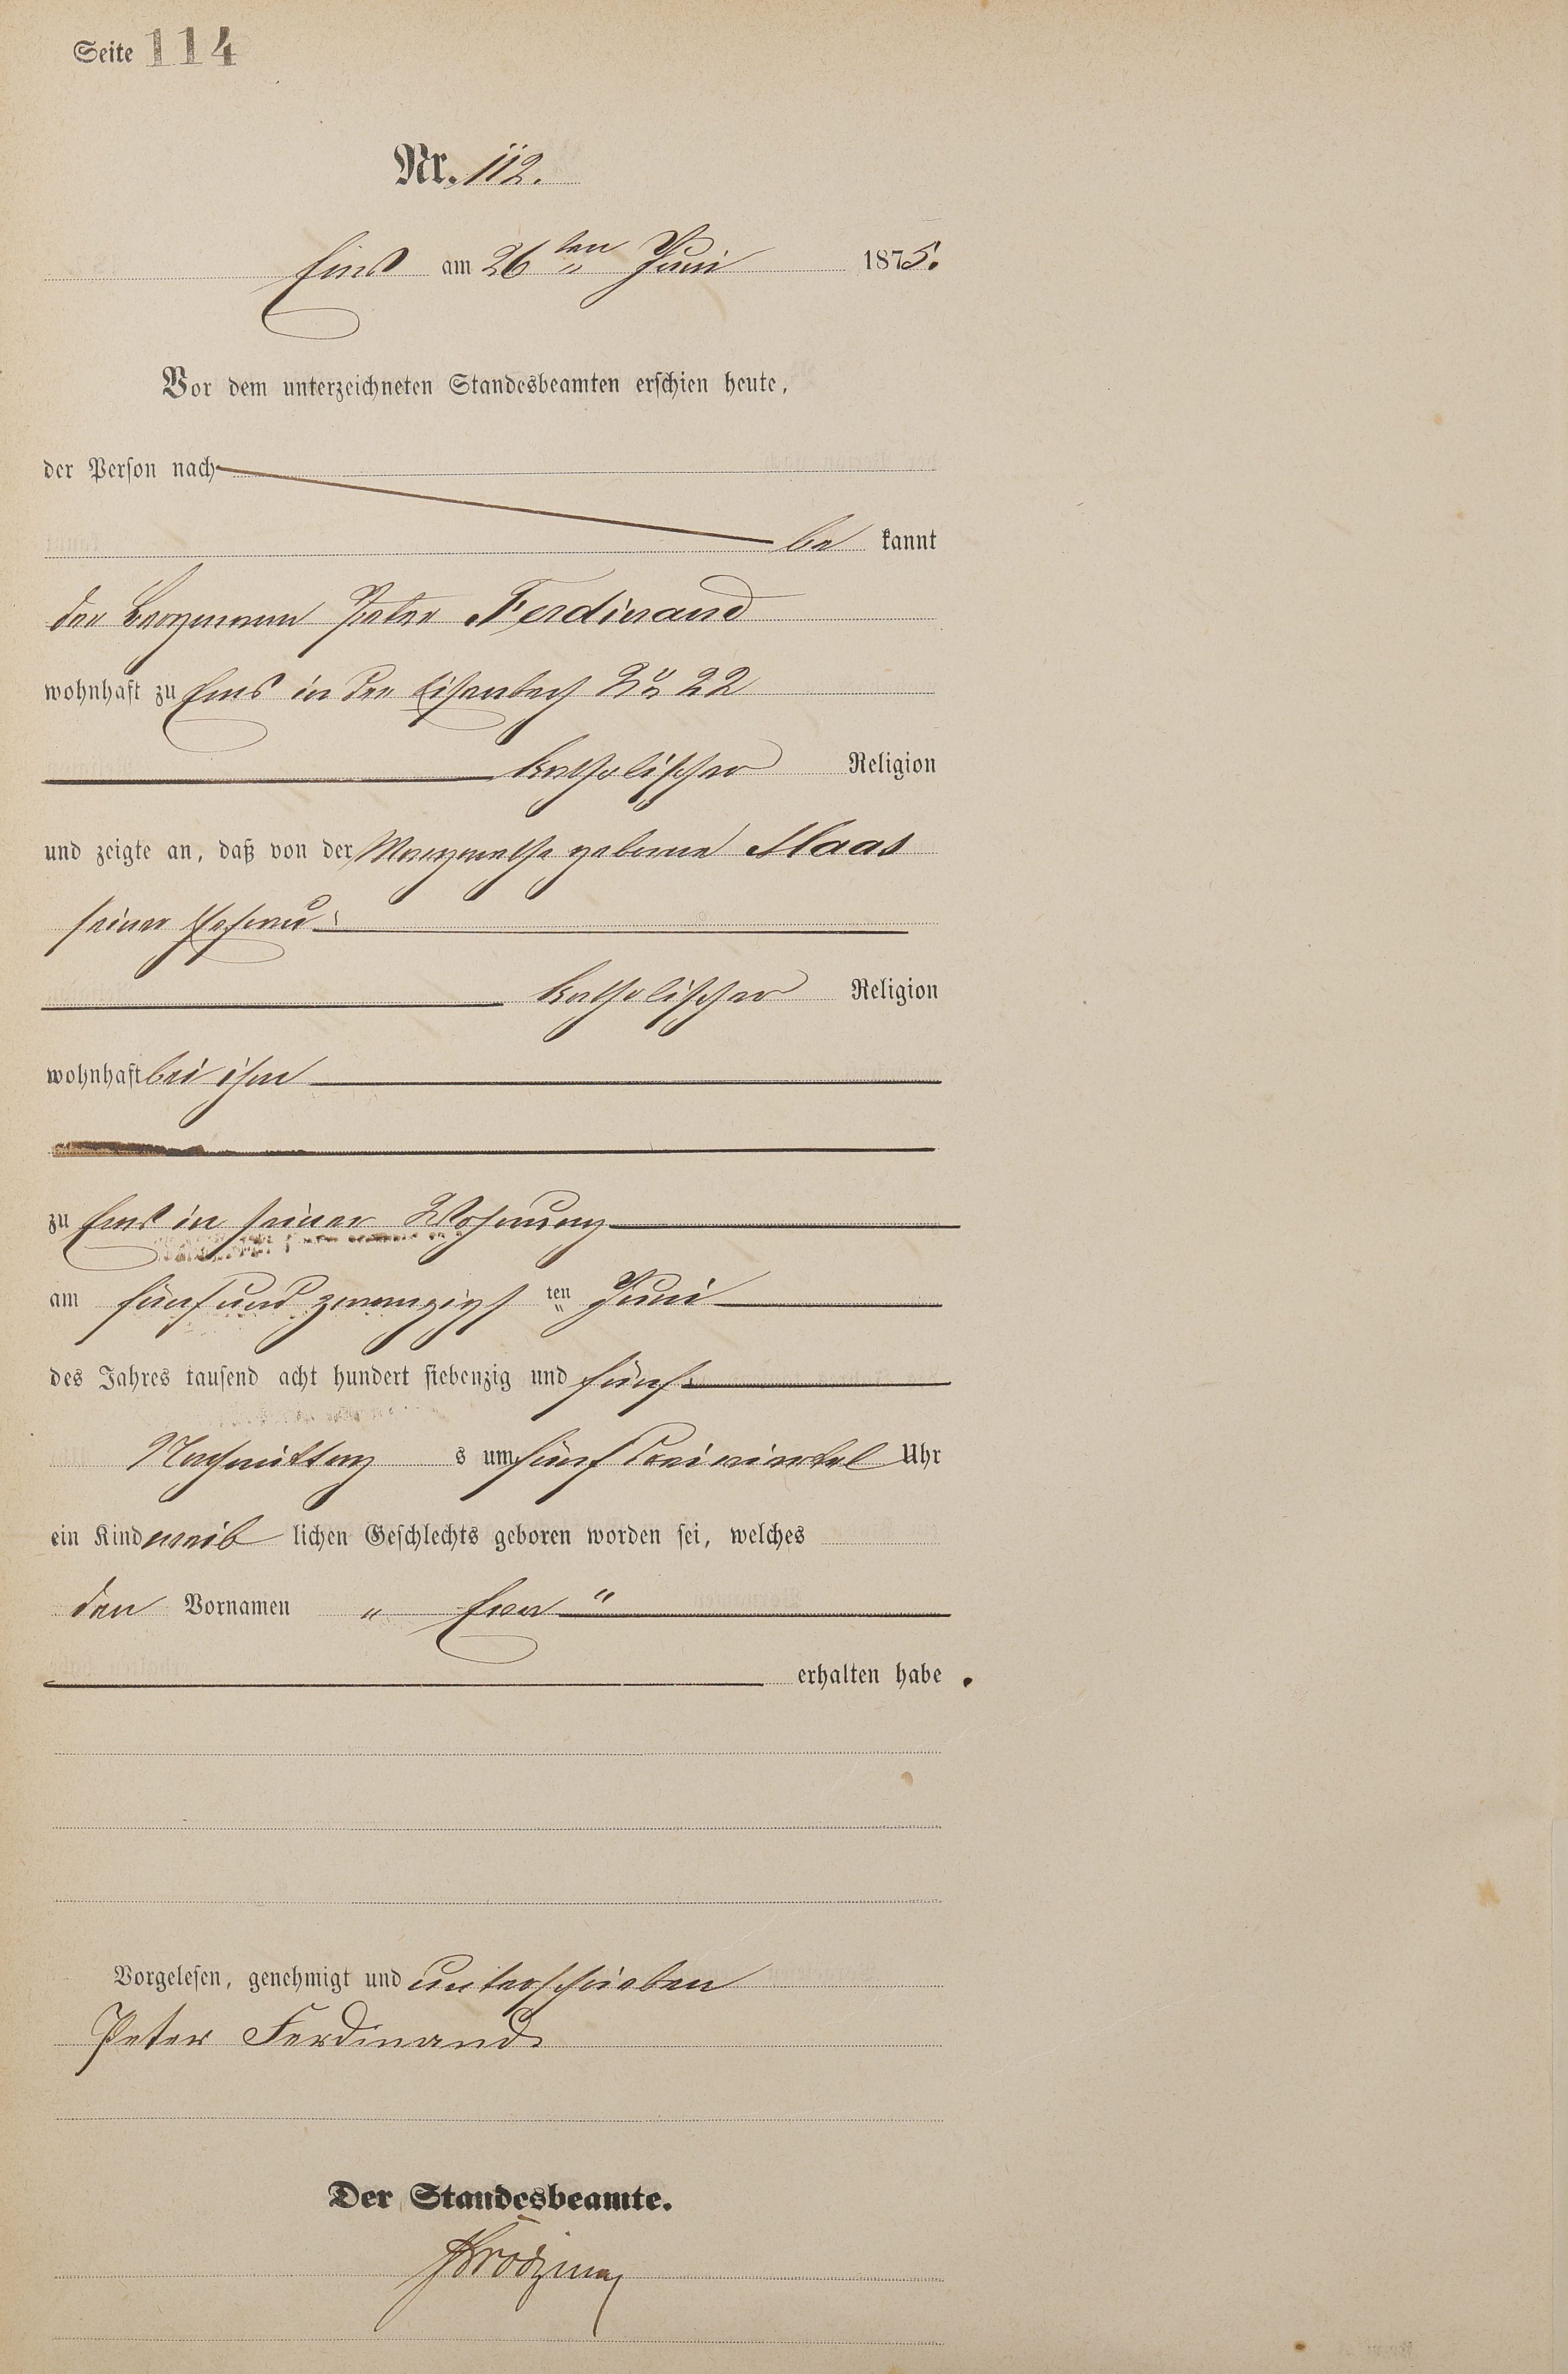 Seite 114
Nr. 112.
Ems am 26 ten Juni 1875.
Vor dem unterzeichneten Standesbeamten erschien heute,
der Person nach
be kannt
der Bergmann Peter Ferdinand
wohnhaft zu Ems in der Eisenbach No 22
katholischer Religion
und zeigte an, daß von der Margarethe geborne Maas
seiner Ehefrau
katholischer Religion
wohnhaft bei ihm
zu Ems in seiner Wohnung
am fünf und zwanzigs ten Juni
des Jahres tausend acht hundert siebenzig und fünf
Nachmittag s um fünf dreiviertel Uhr
ein Kind weib lichen Geschlechts geboren worden sei, welches
den Vornamen „ Eva "
erhalten habe.
Vorgelesen, genehmigt und unterschrieben
Peter Ferdinand
Der Standesbeamte.